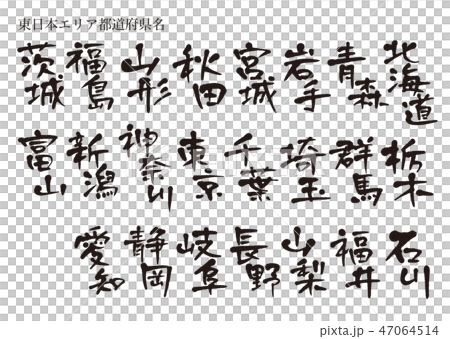 東日本エリア都道府県名
北海道
青森
岩手
宮城
秋田
山形
福島
茨城
栃木
群馬
埼玉
千葉
東京
神奈川
新潟
富山
石川
福井
山梨
長野
岐阜
静岡
愛知
pixta.jp - 47064514